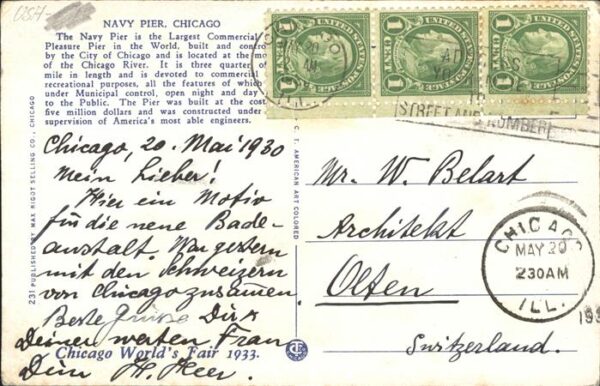 USA
NAVY PIER, CHICAGO
The Navy Pier is the Largest Commercial
Pleasure Pier in the World, built and contro
by the City of Chicago and is located at the mo
of the Chicago River. It is three quarter of
mile in length and is devoted to commercial
recreational purposes, all the features of which
under Municipal control, open night and day
to the Public. The Pier was built at the cost
five million dollars and was constructed under
supervision of America's most able engineers.
Chicago, 20. Mai 1930
Mein Lieber!
Hier ein Motiv
für die neue Bade-
anstalt. War gestern
mit den Schweizern
von Chicago zusamen.
Beste Grüsse Dir &
Deiner werten Frau
Dein H. Heer.
Chicago World's Fair 1933.
231 PUBLISHED BY MAX RIGOT SELLING CO., CHICAGO
C. T. AMERICAN ART COLORED
1 1 1
STREET AND NUMBER
Mr. W. Belart
Architekt
Olten
Switzerland.
CHICAGO
MAY 20
230AM
ILL.